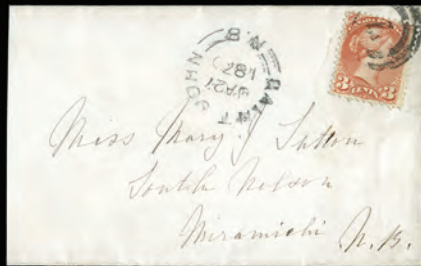 SAINT JOHN N.B
JA 27
187
3 CENTS 3
Miss Mary J Sutton
South Nelson
Miramichi N.B.